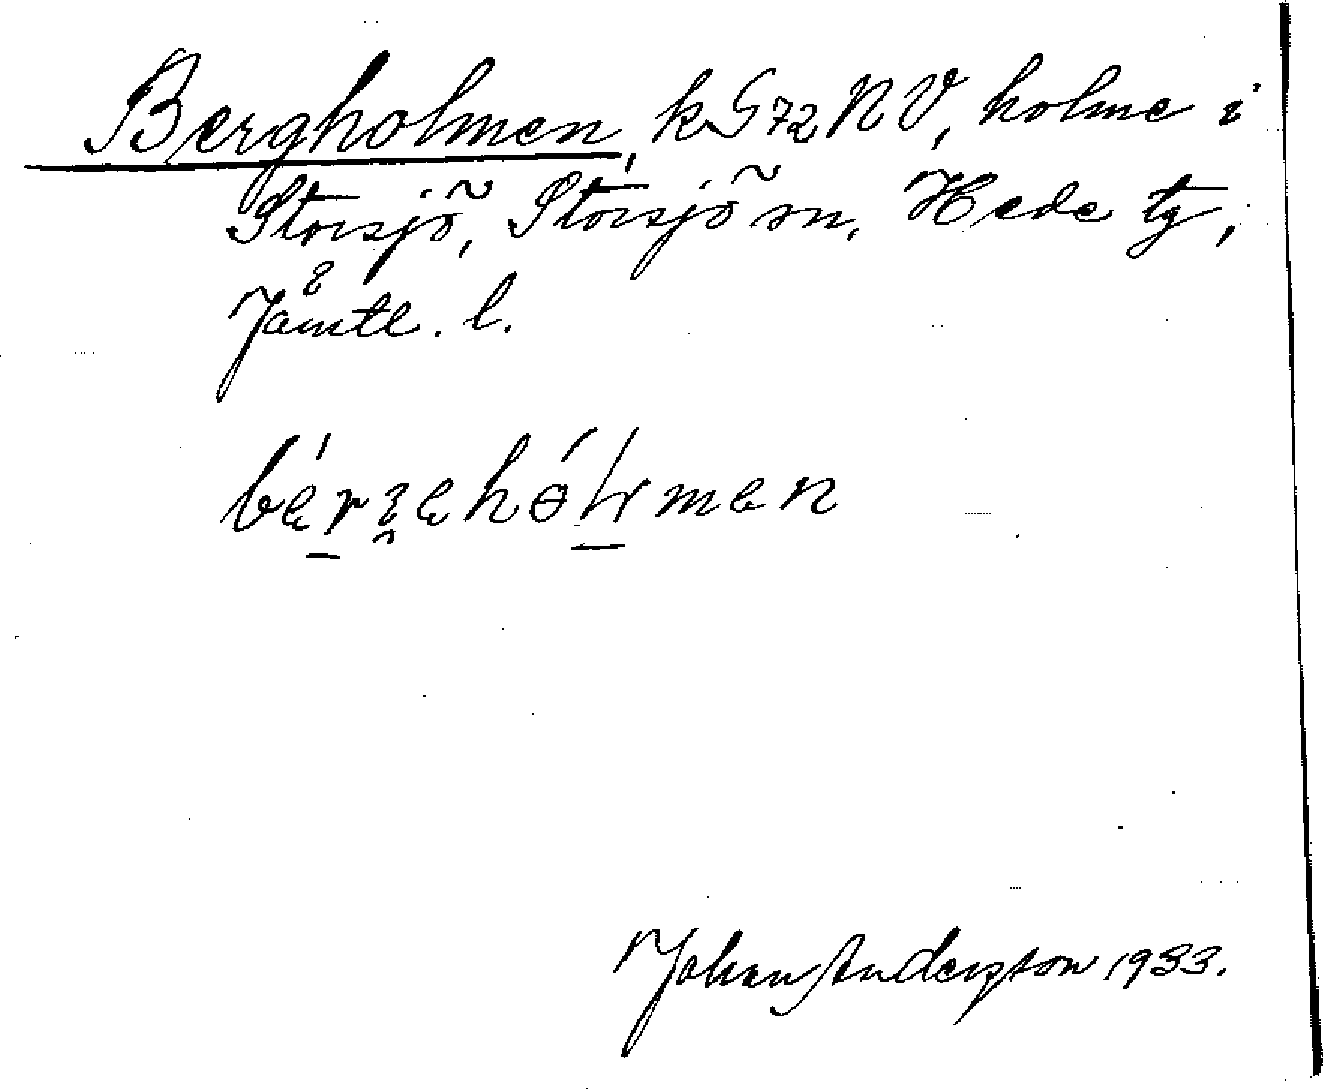 Bergholmen, kG72NV, holme i
Storsjö, Storsjö sn, Hede tg,
Jämtl. l.
Johan Anderszon 1933.